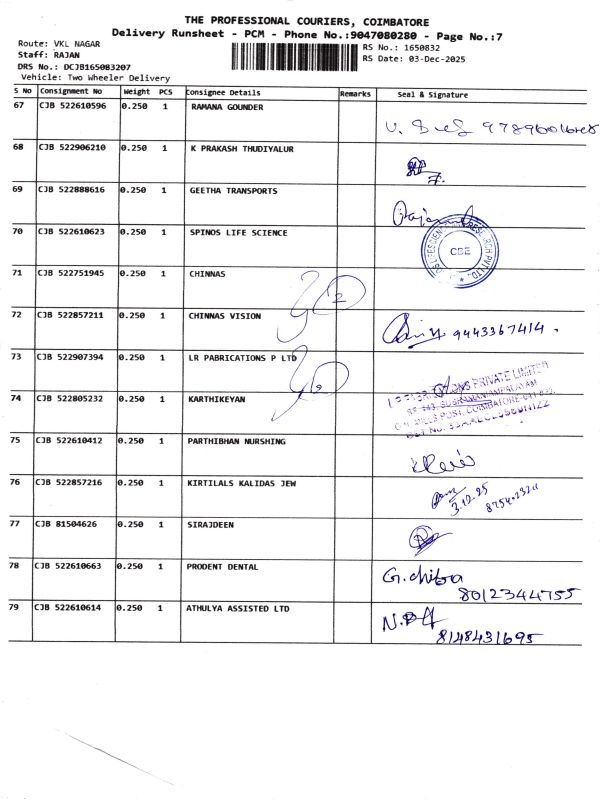 THE PROFESSIONAL COURIERS, COIMBATORE
Delivery Runsheet - PCM - Phone No.:9047080280 - Page No.:7
Route: VKL NAGAR
Staff: RAJAN
DRS No.: DCJB165083207
Vehicle: Two Wheeler Delivery
RS No.: 1650832
RS Date: 03-Dec-2025
S No Consignment No Weight PCS Consignee Details Remarks Seal & Signature
67 CJB 522610596 0.250 1 RAMANA GOUNDER
68 CJB 522906210 0.250 1 K PRAKASH THUDIYALUR
69 CJB 522888616 0.250 1 GEETHA TRANSPORTS
70 CJB 522610623 0.250 1 SPINOS LIFE SCIENCE
CBE
71 CJB 522751945 0.250 1 CHINNAS
72 CJB 522857211 0.250 1 CHINNAS VISION 9443367414.
73 CJB 522907394 0.250 1 LR PABRICATIONS P LTD
PRIVATE LIMITED
74 CJB 522805232 0.250 1 KARTHIKEYAN
75 CJB 522610412 0.250 1 PARTHIBAN NURSHING
76 CJB 522857216 0.250 1 KIRTILALS KALIDAS JEW
3.12.25
77 CJB 81504626 0.250 1 SIRAJDEEN
78 CJB 522610663 0.250 1 PRODENT DENTAL G.chitra
8012344755
79 CJB 522610614 0.250 1 ATHULYA ASSISTED LTD
8148431695